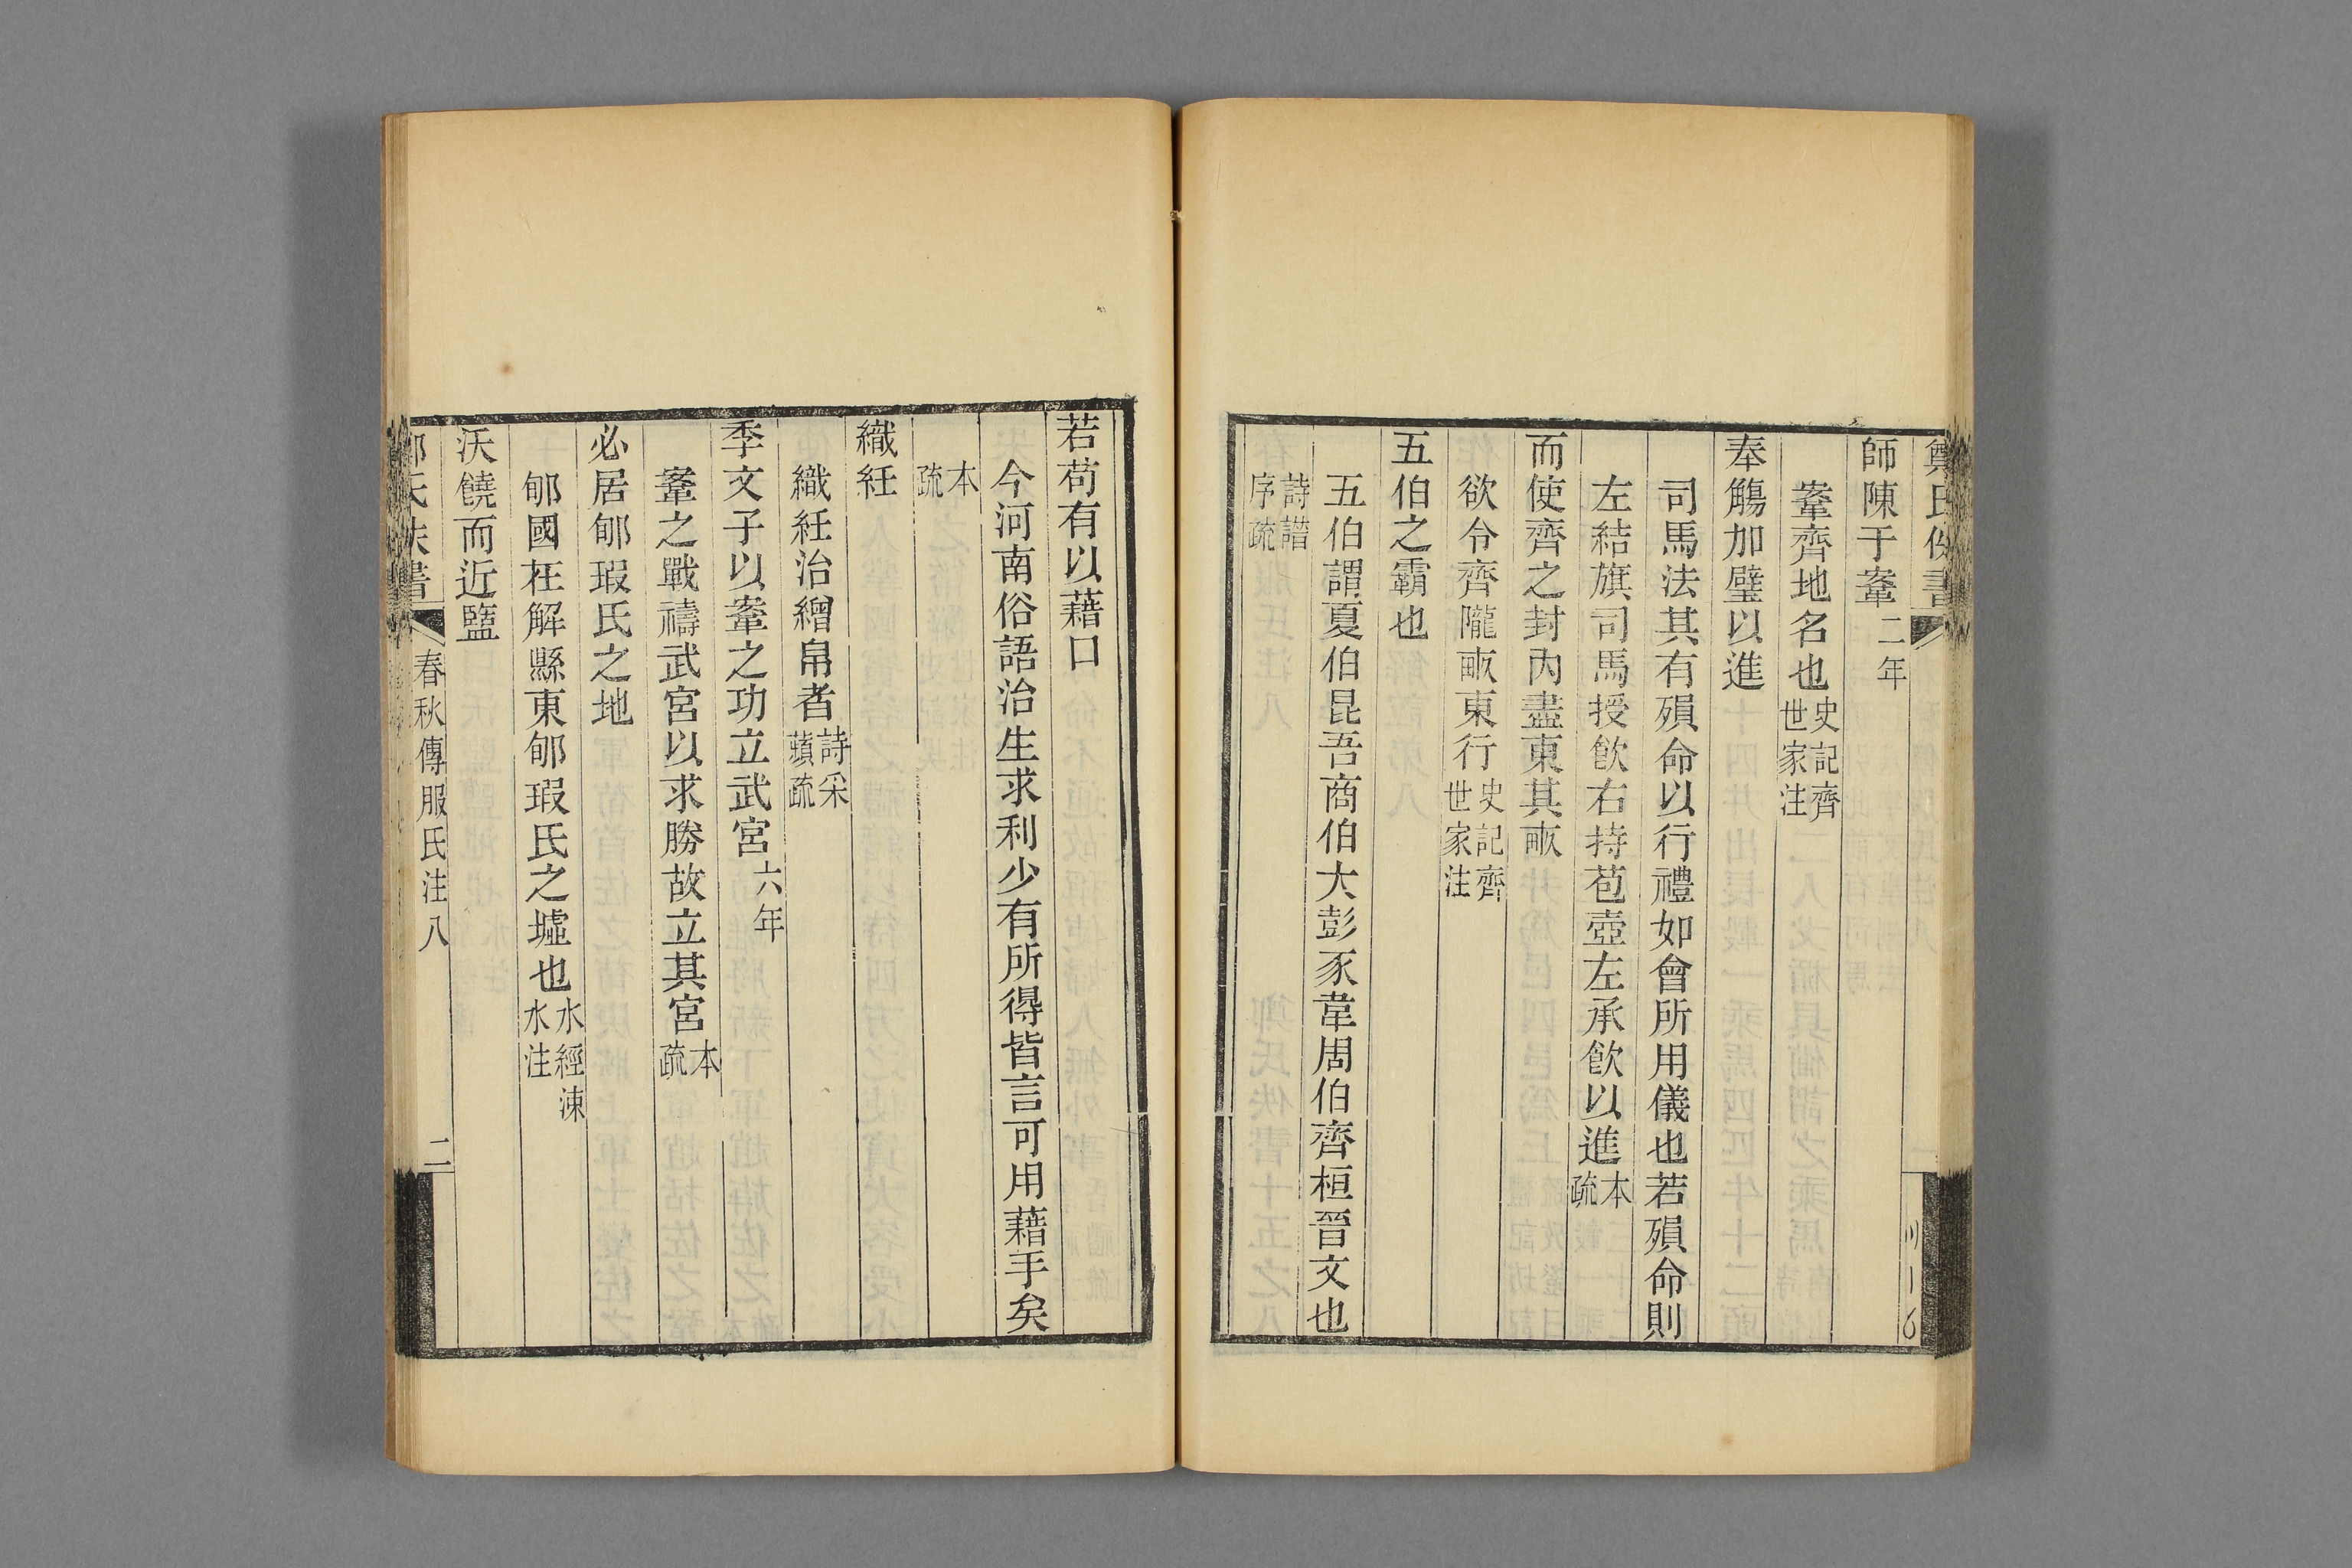 鄭氏佚書
師陳于鞌二年
鞌齊地名也史記齊世家注
奉觴加璧以進
司馬法其有殞命以行禮如會所用儀也若殞命則
左結旗司馬授飮右持苞壺左承飮以進本疏
而使齊之封內盡東其畞
欲令齊隴畞東行史記齊世家注
五伯之霸也
五伯謂夏伯昆吾商伯大彭豕韋周伯齊桓晉文也
詩譜序疏
若苟有以藉口
今河南俗語治生求利少有所得皆言可用藉手矣
本疏
織紝
織紝治繒帛者詩采蘋疏
季文子以鞌之功立武宮六年
鞌之戰禱武宮以求勝故立其宮本疏
必居郇瑕氏之地
郇國在解縣東郇瑕氏之墟也水經涑水注
沃饒而近盬
春秋傳服氏注八
二